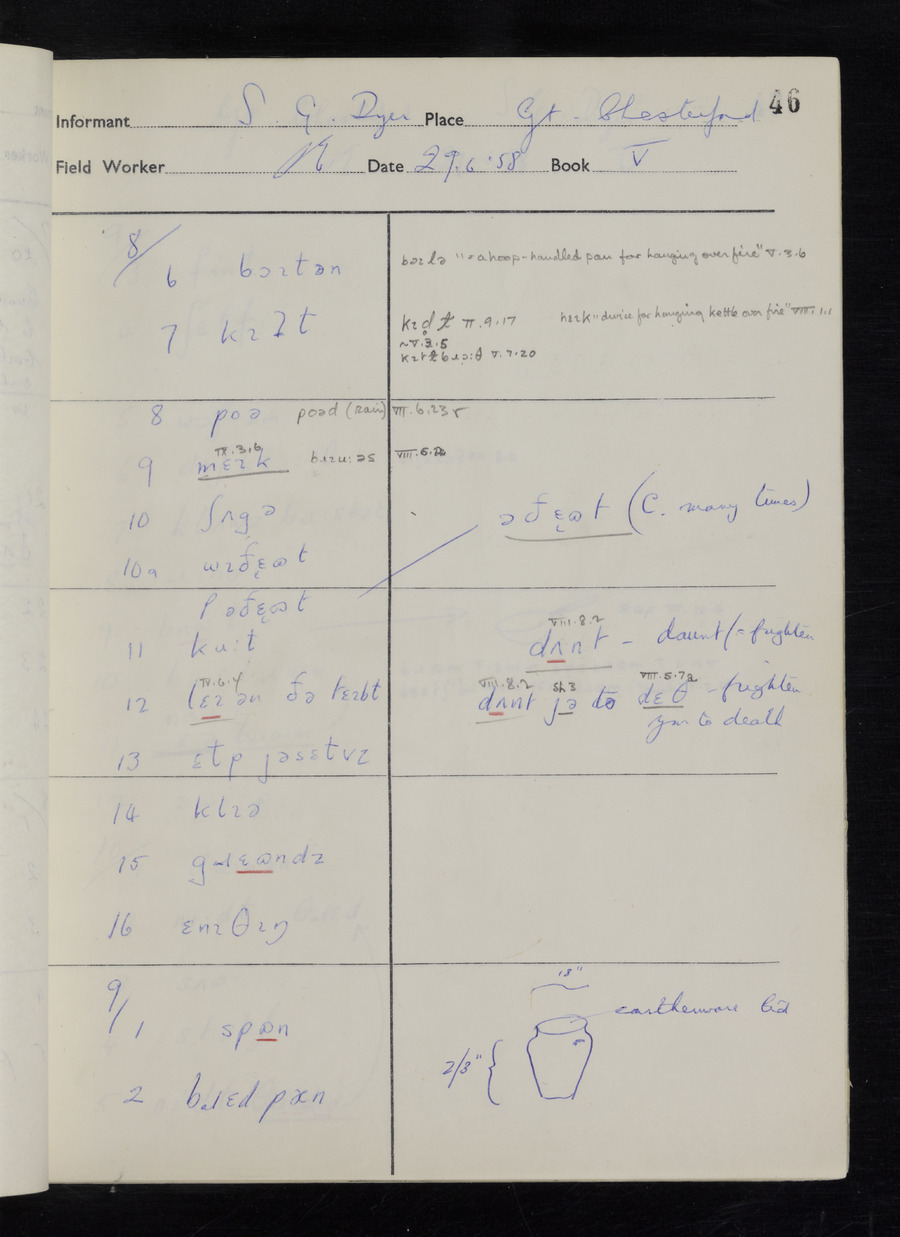 46
Informant S. G. Dyer Place Gt. Chesterford
Field Worker Date 29.6.58 Book V
8/
6 bɔɪtən "=a hoop-handled pan for hanging over fire" V.3.6
7 kɪʔt II.9.17 "device for hanging kettle over fire" VIII.1.1
~V.3.5
V.7.20
8 poə poəd (rain) VII.6.23
IX.3.6
9 mɛɪk
10 ʃʌgə
əðɛɷt (C. many times)
10a wɪðɛɷt
pəðɛɷt
11 ku:t
VIII.8.2
dʌnt – daunt (= frighten
IV.6.4
12 lɛɪən ðə tɛɪbt
VIII.8.2 SH3 VIII.5.7a
dʌnt jə tə dɛθ – frighten
you to death
13 ɛtp jəsɛtvz
14 klɪə
15 gɹɛɷndz
16 ɛnɪθɪŋ
9/
1 spɷn
18"
earthenware lid
2/3"
2 bɹɛd pæn